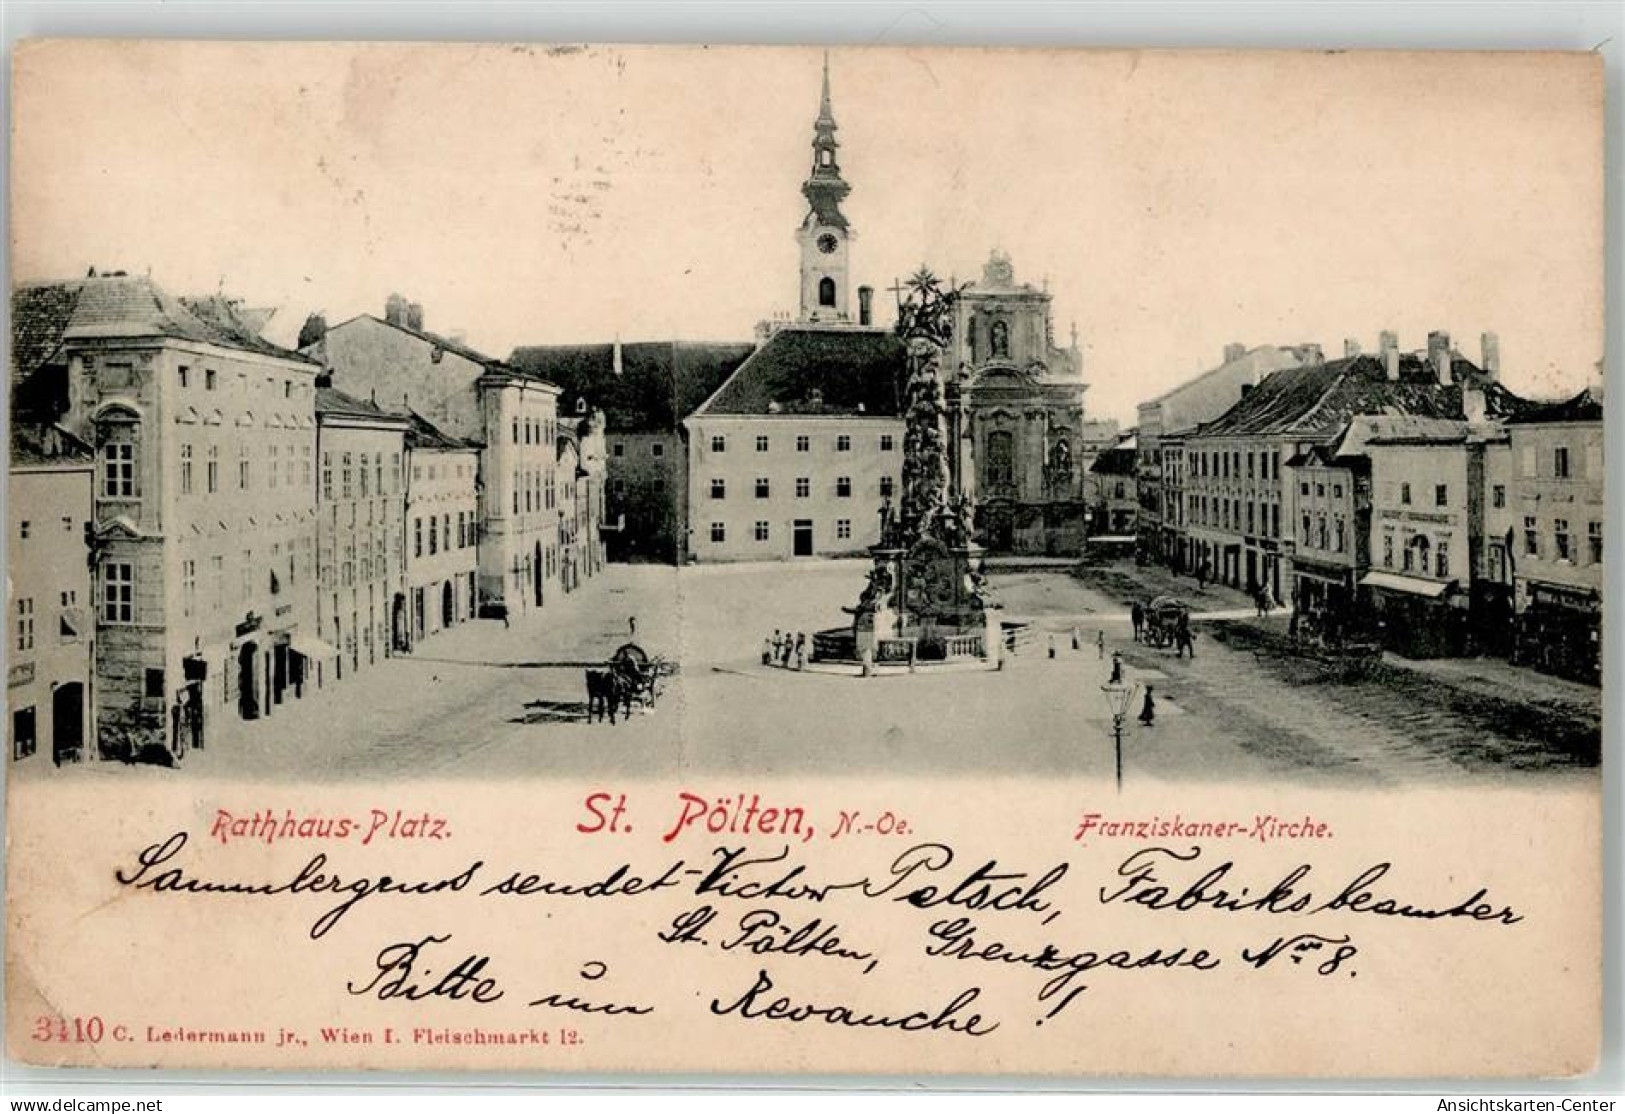 Rathhaus-Platz. St. Pölten, N.-Oe. Franziskaner-Kirche.
Sammlergruß sendet Victor Petsch, Fabriksbeamter
St. Pölten, Grenzgasse Nro 8.
Bitte um Revanche!
3410 C. Ledermann jr., Wien I. Fleischmarkt 12.
delcampe.net
Ansichtskarten-Center